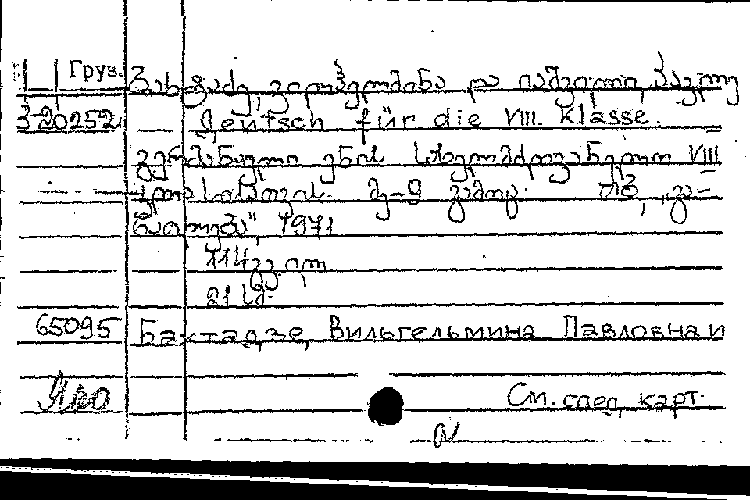 Груз. ბახტაძე, ვილჰელმინა და იაშვილი, პავლე
3-20252 — Deutsch für die VIII. Klasse.
გერმანული ენის სახელმძღვანელო VIII
კლასისათვის. მე-9 გამოც. თბ., „გა-
ნათლება", 1971
114 გვ. ილ.
21 სმ.
65095 Бахтадзе, Вильгельмина Павловна и
См. след. карт.